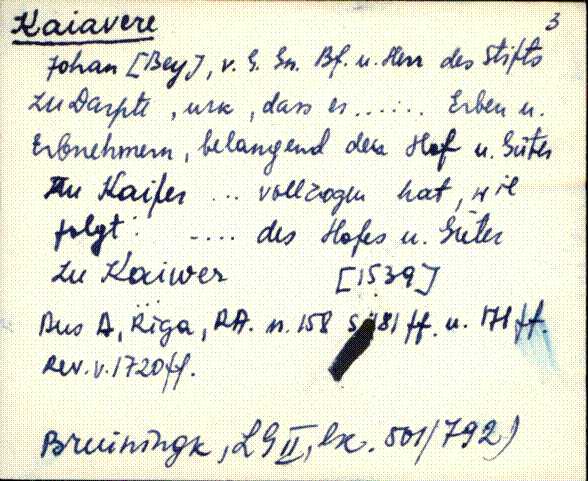 Kaiavere 3
Johan [Bey], v. G. Gn. Bf. u. Herr des Stifts
zu Darpte, urk, dass es ...... Erben u.
Erbnehmern, belangend den Hof u. Güter
zu Kaifer ... vollzogen hat, wie
folgt: .... des Hofes u. Güter
zu Kaiwer [1539]
Aus A, Riga, RA. n. 158 S 181 ff. u. 171 ff.
Rev. v. 1720 ff.
Bruiningk, LG II, lk. 501/792)